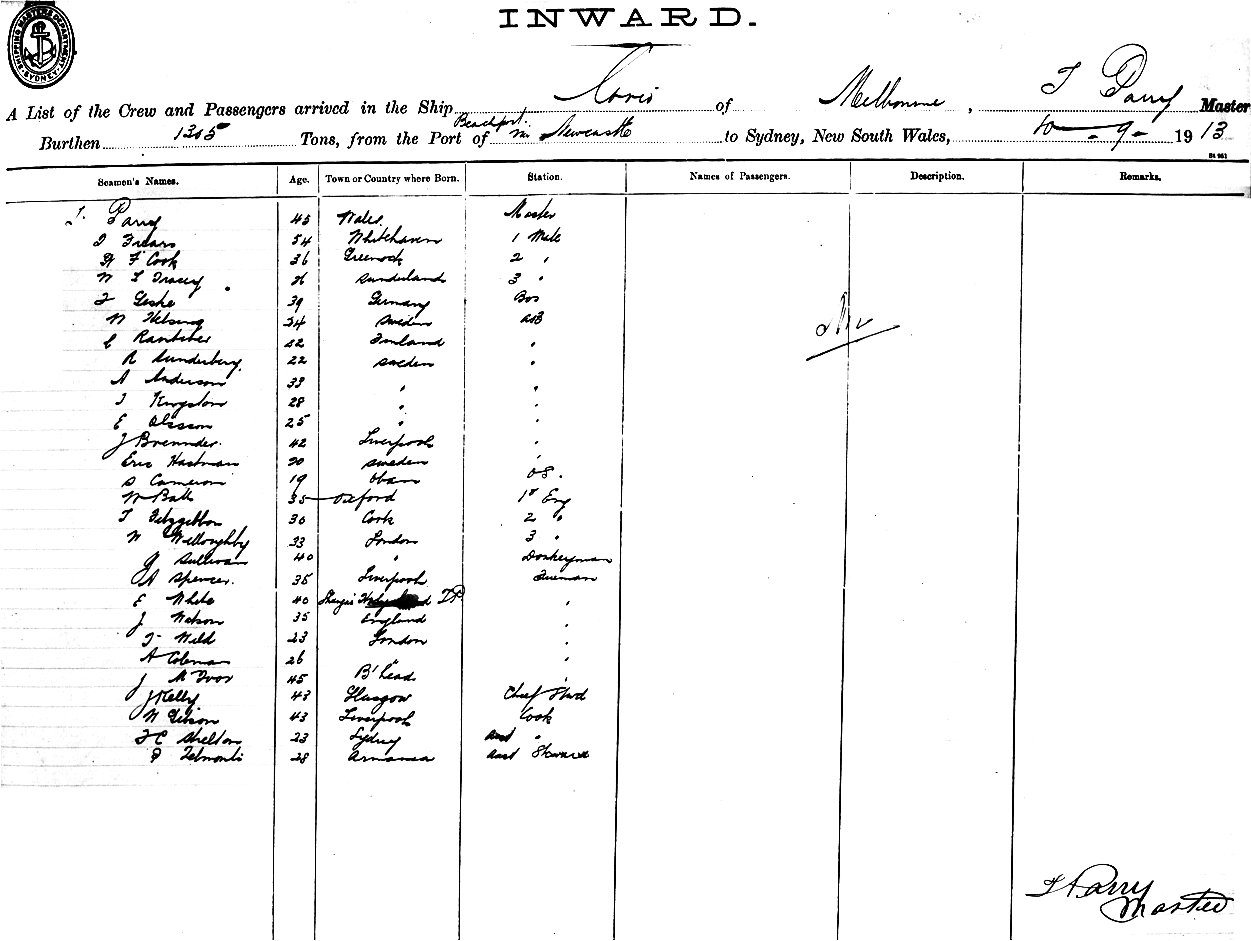 SHIPPING MASTER'S DEPARTMENT SYDNEY
INWARD.
A List of the Crew and Passengers arrived in the Ship of Melbourne, T Parry Master
Burthen 1305 Tons, from the Port of Beachport via Newcastle to Sydney, New South Wales, 10 - 9 - 1913
Seamen's Names. Age. Town or Country where Born. Station. Names of Passengers. Description. Remarks.
T. Parry 45 Wales. Master
54 Whitehaven 1 Mate
F Cook 36 Greenock 2 "
Tracey 26 Sunderland 3 "
39 Germany Bos
Sweden AB
Finland "
R Sunderberg. 22 Sweden "
A Anderson 33 " "
Kingston 28 " "
E Olsson 25 " "
J 42 Liverpool "
Eric Hastman 20 Sweden "
S Cameron 19 Oban OS.
W 35 Oxford 1st Eng
T Fitzgibbon 30 Cork 2 "
W Willoughby 33 London 3 "
Sullivan 40 " Donkeyman
A Spencer. 35 Liverpool Fireman
E White 40 TP "
J Watson 35 England "
Wild 23 London "
A Coleman 26 " "
J McIvor 45 B'head "
J Kelly 43 Glasgow Chief Stwd
W Gibson 43 Liverpool Cook
Shelton 23 Sydney asst "
28 asst Steward
T Parry
Master